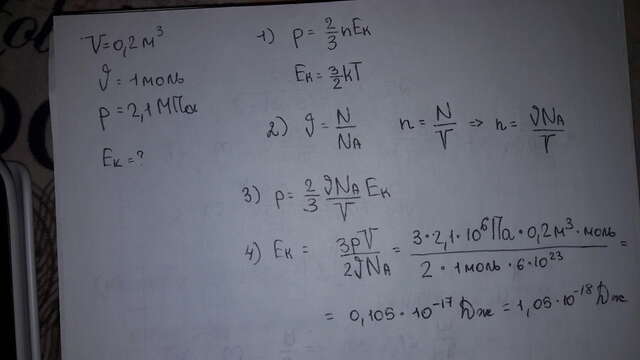 V=0,2 м³
ϑ = 1 моль
P = 2,1 МПа
Eк = ?
1) P = 2/3 nEк
Eк = 3/2 kT
2) ϑ = N/NA n = N/V => n = ϑNA/V
3) P = 2/3 ϑNA/V Eк
4) Eк = 3pV/2ϑNA = 3·2,1·10⁶Па·0,2м³·моль/2·1моль·6·10²³ =
= 0,105·10⁻¹⁷Дж = 1,05·10⁻¹⁸Дж